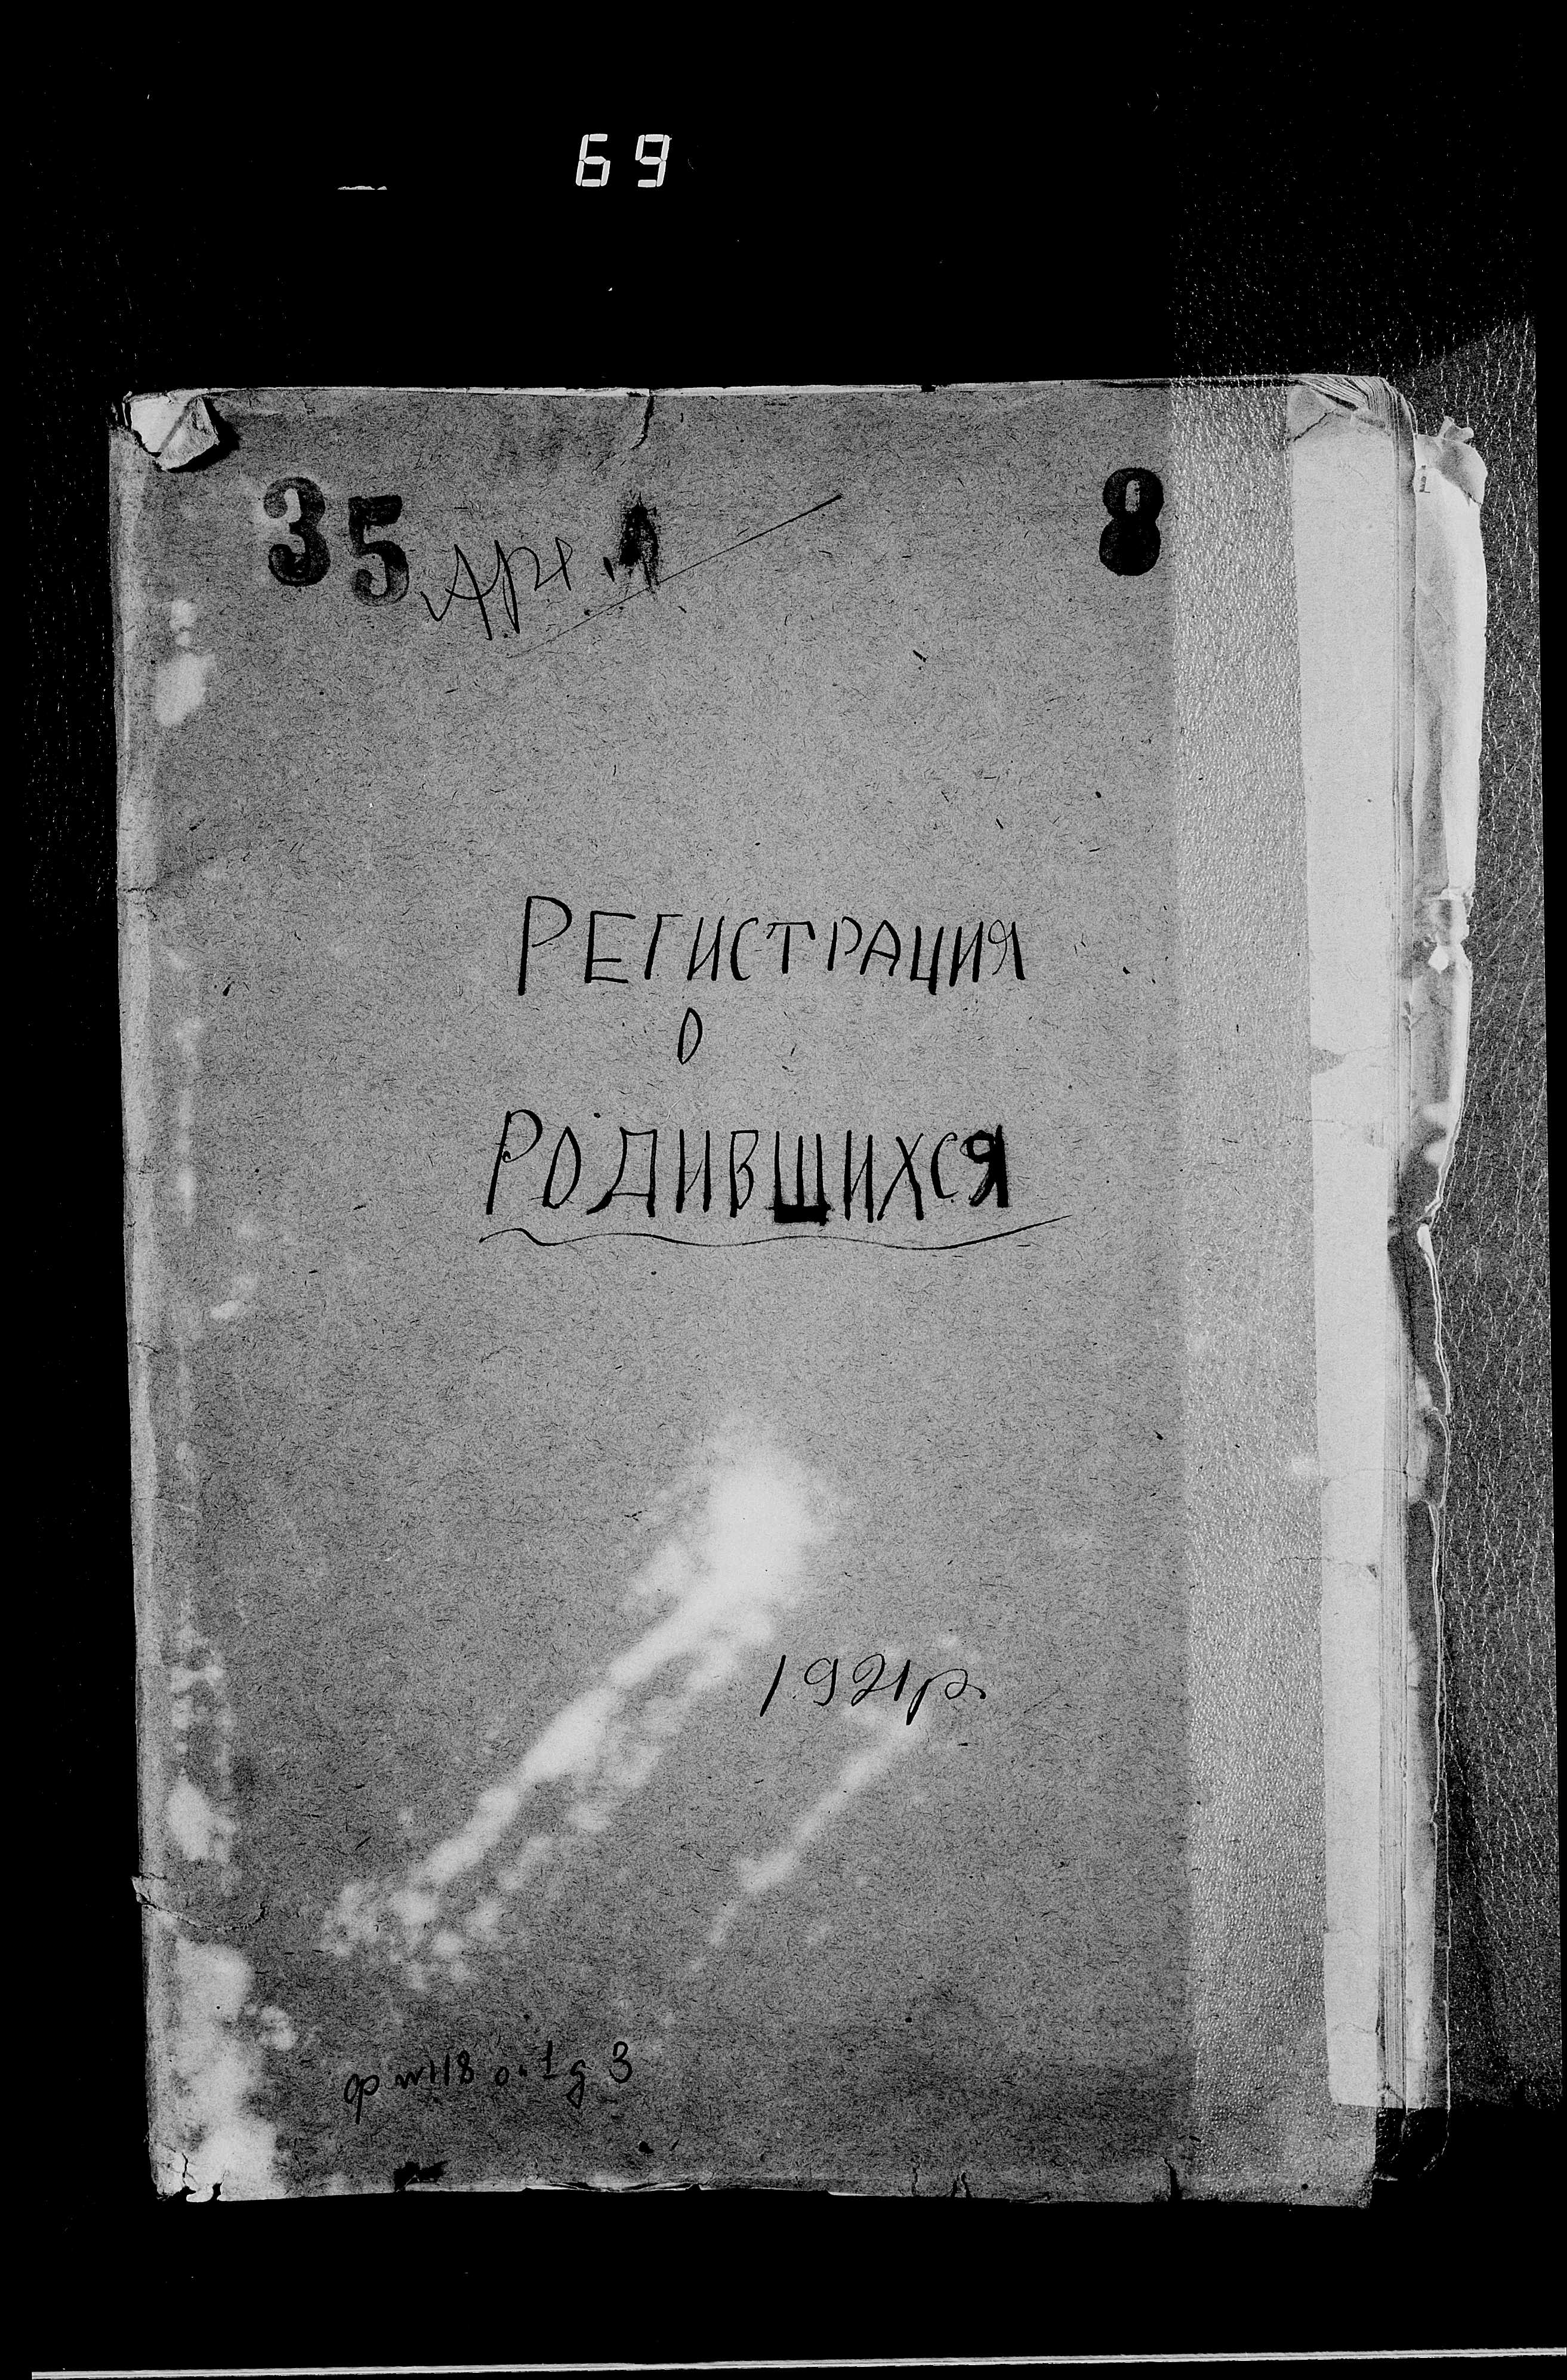 69
35 Арх. 8
РЕГИСТРАЦИЯ
О
РОДИВШИХСЯ
1921р.
1118 о. 1 д 3